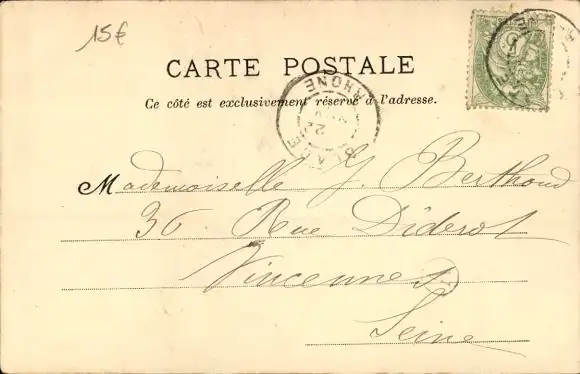 15€
CARTE POSTALE
Ce côté est exclusivement réservé à l'adresse.
RHONE
Mademoiselle J. Berthoud
36 Rue Diderot
Vincennes
Seine